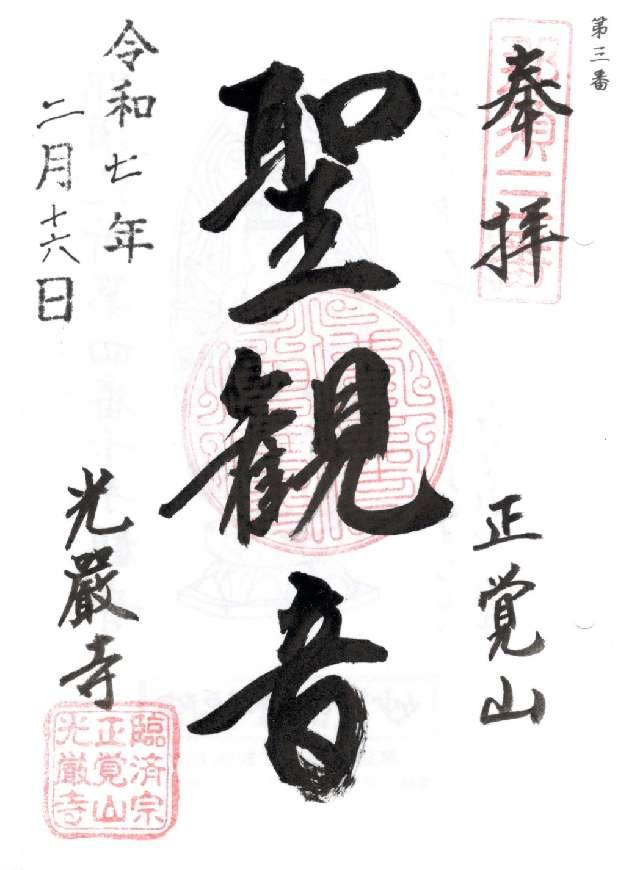 第三番
奉拝
正覚山
聖観音
令和七年
二月十六日
光嚴寺
臨済宗
正覚山
光厳寺